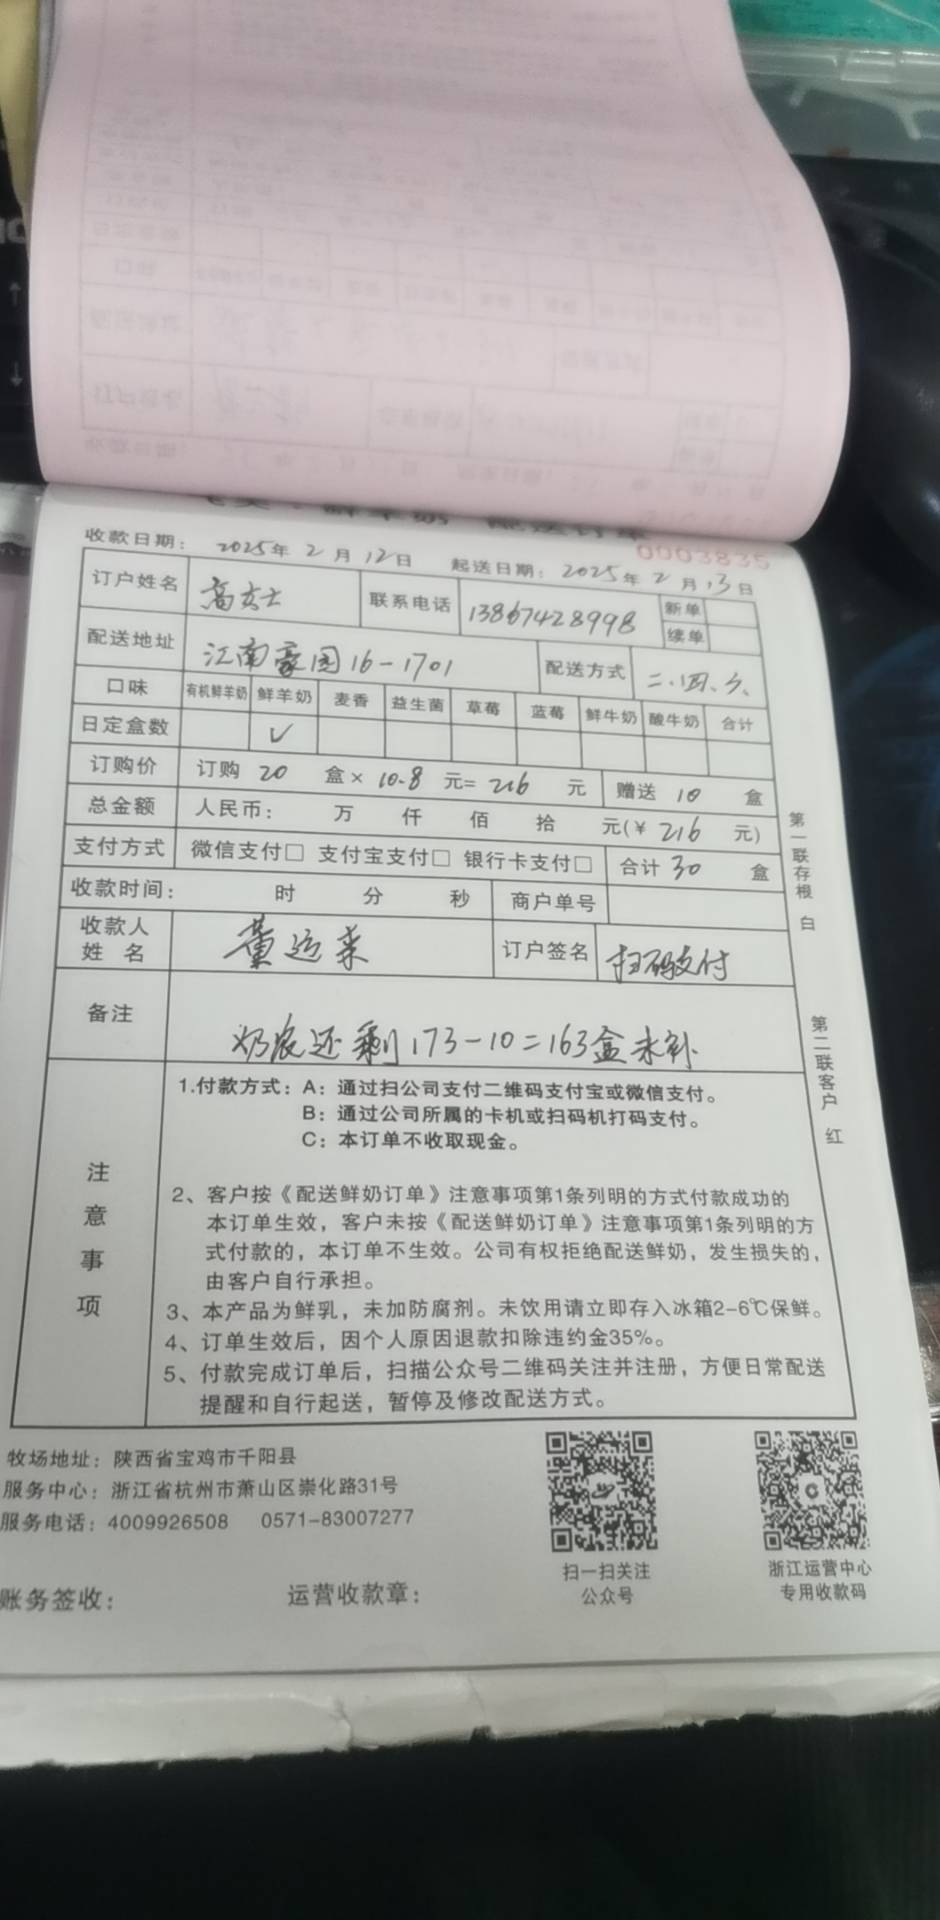 鲜羊奶 配送订单
0003835
收款日期: 2025年 2月 12日 起送日期: 2025年 2月 13日
订户姓名 高女士 联系电话 13867428998 新单
续单
配送地址 江南豪园16-1701 配送方式 二、四、六、
口味 有机鲜羊奶 鲜羊奶 麦香 益生菌 草莓 蓝莓 鲜牛奶 酸牛奶 合计
日定盒数 ✓
订购价 订购 20 盒× 10.8 元= 216 元 赠送 10 盒
总金额 人民币: 万 仟 佰 拾 元(¥ 216 元)
支付方式 微信支付□ 支付宝支付□ 银行卡支付□ 合计 30 盒
收款时间: 时 分 秒 商户单号
收款人
姓 名 董运来 订户签名 扫码支付
备注 奶農还剩173-10=163盒未补
注意事项
1.付款方式:A:通过扫公司支付二维码支付宝或微信支付。
B:通过公司所属的卡机或扫码机打码支付。
C:本订单不收取现金。
2、客户按《配送鲜奶订单》注意事项第1条列明的方式付款成功的
本订单生效,客户未按《配送鲜奶订单》注意事项第1条列明的方
式付款的,本订单不生效。公司有权拒绝配送鲜奶,发生损失的,
由客户自行承担。
3、本产品为鲜乳,未加防腐剂。未饮用请立即存入冰箱2-6℃保鲜。
4、订单生效后,因个人原因退款扣除违约金35%。
5、付款完成订单后,扫描公众号二维码关注并注册,方便日常配送
提醒和自行起送,暂停及修改配送方式。
第一联存根 白
第二联客户 红
牧场地址:陕西省宝鸡市千阳县
服务中心:浙江省杭州市萧山区崇化路31号
服务电话:4009926508 0571-83007277
扫一扫关注
公众号
浙江运营中心
专用收款码
账务签收: 运营收款章: